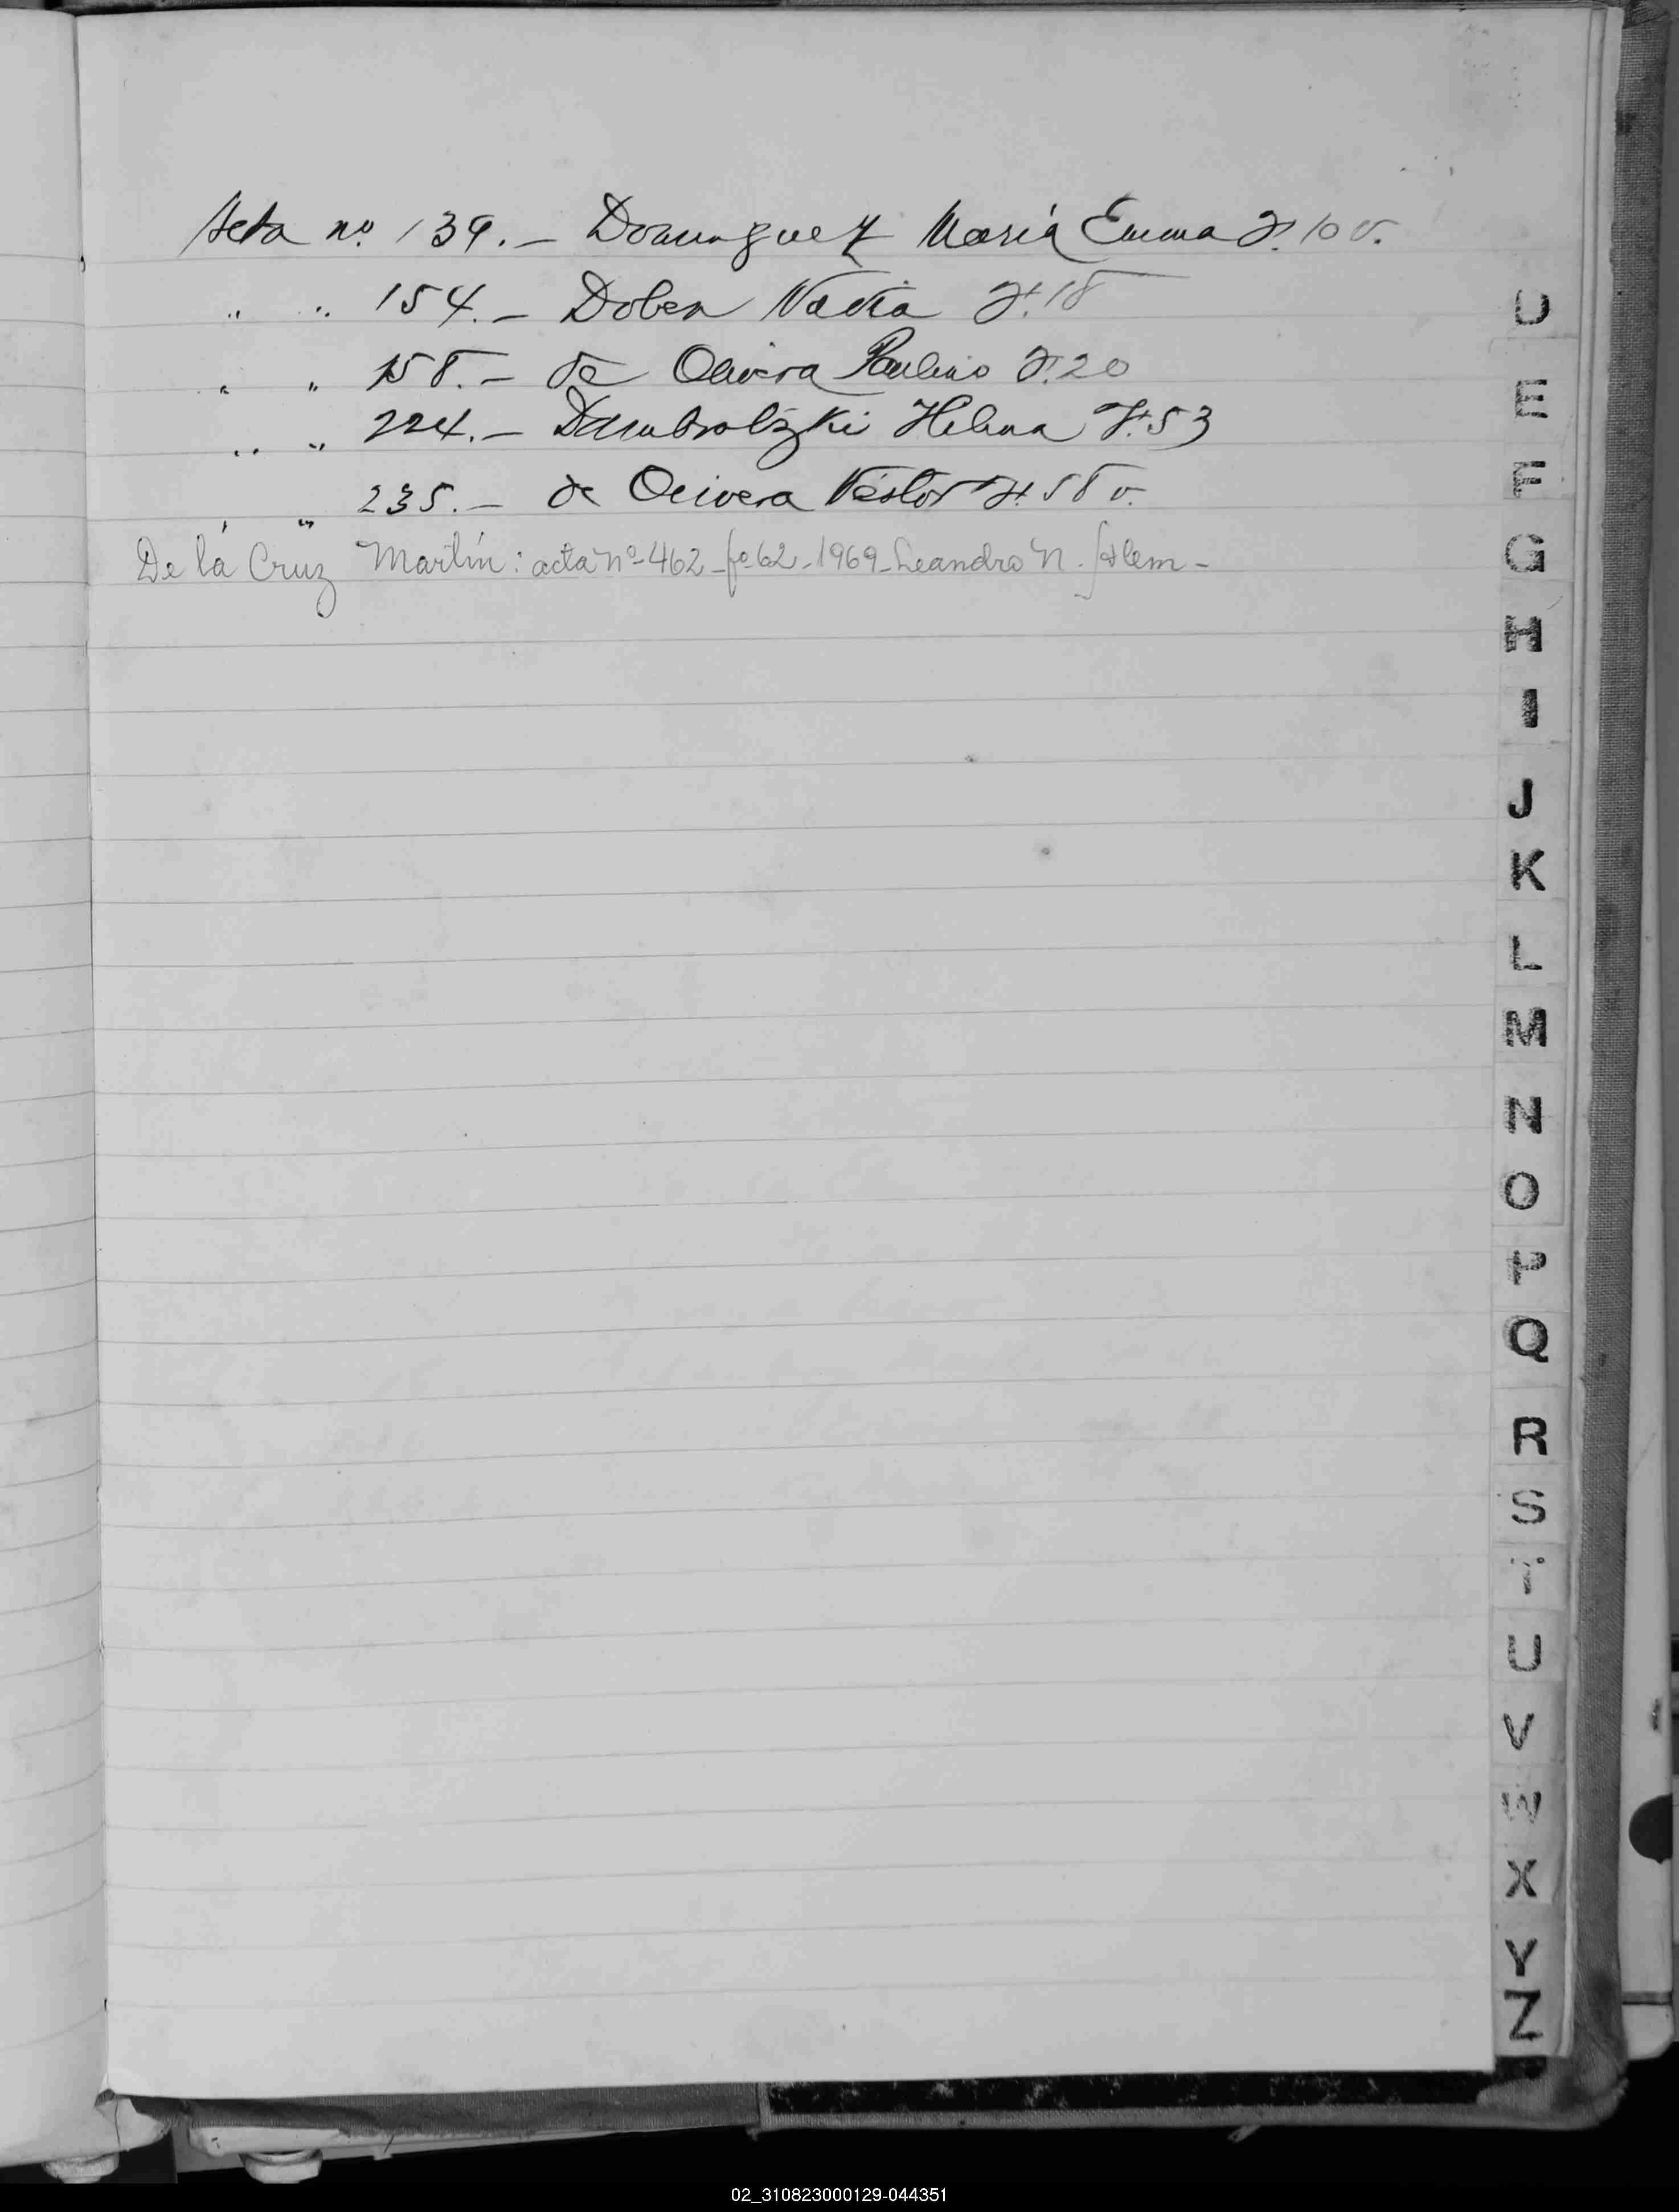 Acta nº 139.- Dominguez María Emma F. 10 v.
" " 154.- Dober Nadia F. 18
" " 158.- de Olivera Paulino F. 20
" " 224.- Dambrolzki Helena F. 53
" 235.- de Olivera Néstor F. 58 v.
De la Cruz Martín: acta nº 462 - fº 62 - 1969 - Leandro N. Alem -
D
E
F
G
H
I
J
K
L
M
N
O
P
Q
R
S
T
U
V
W
X
Y
Z
02_310823000129-044351